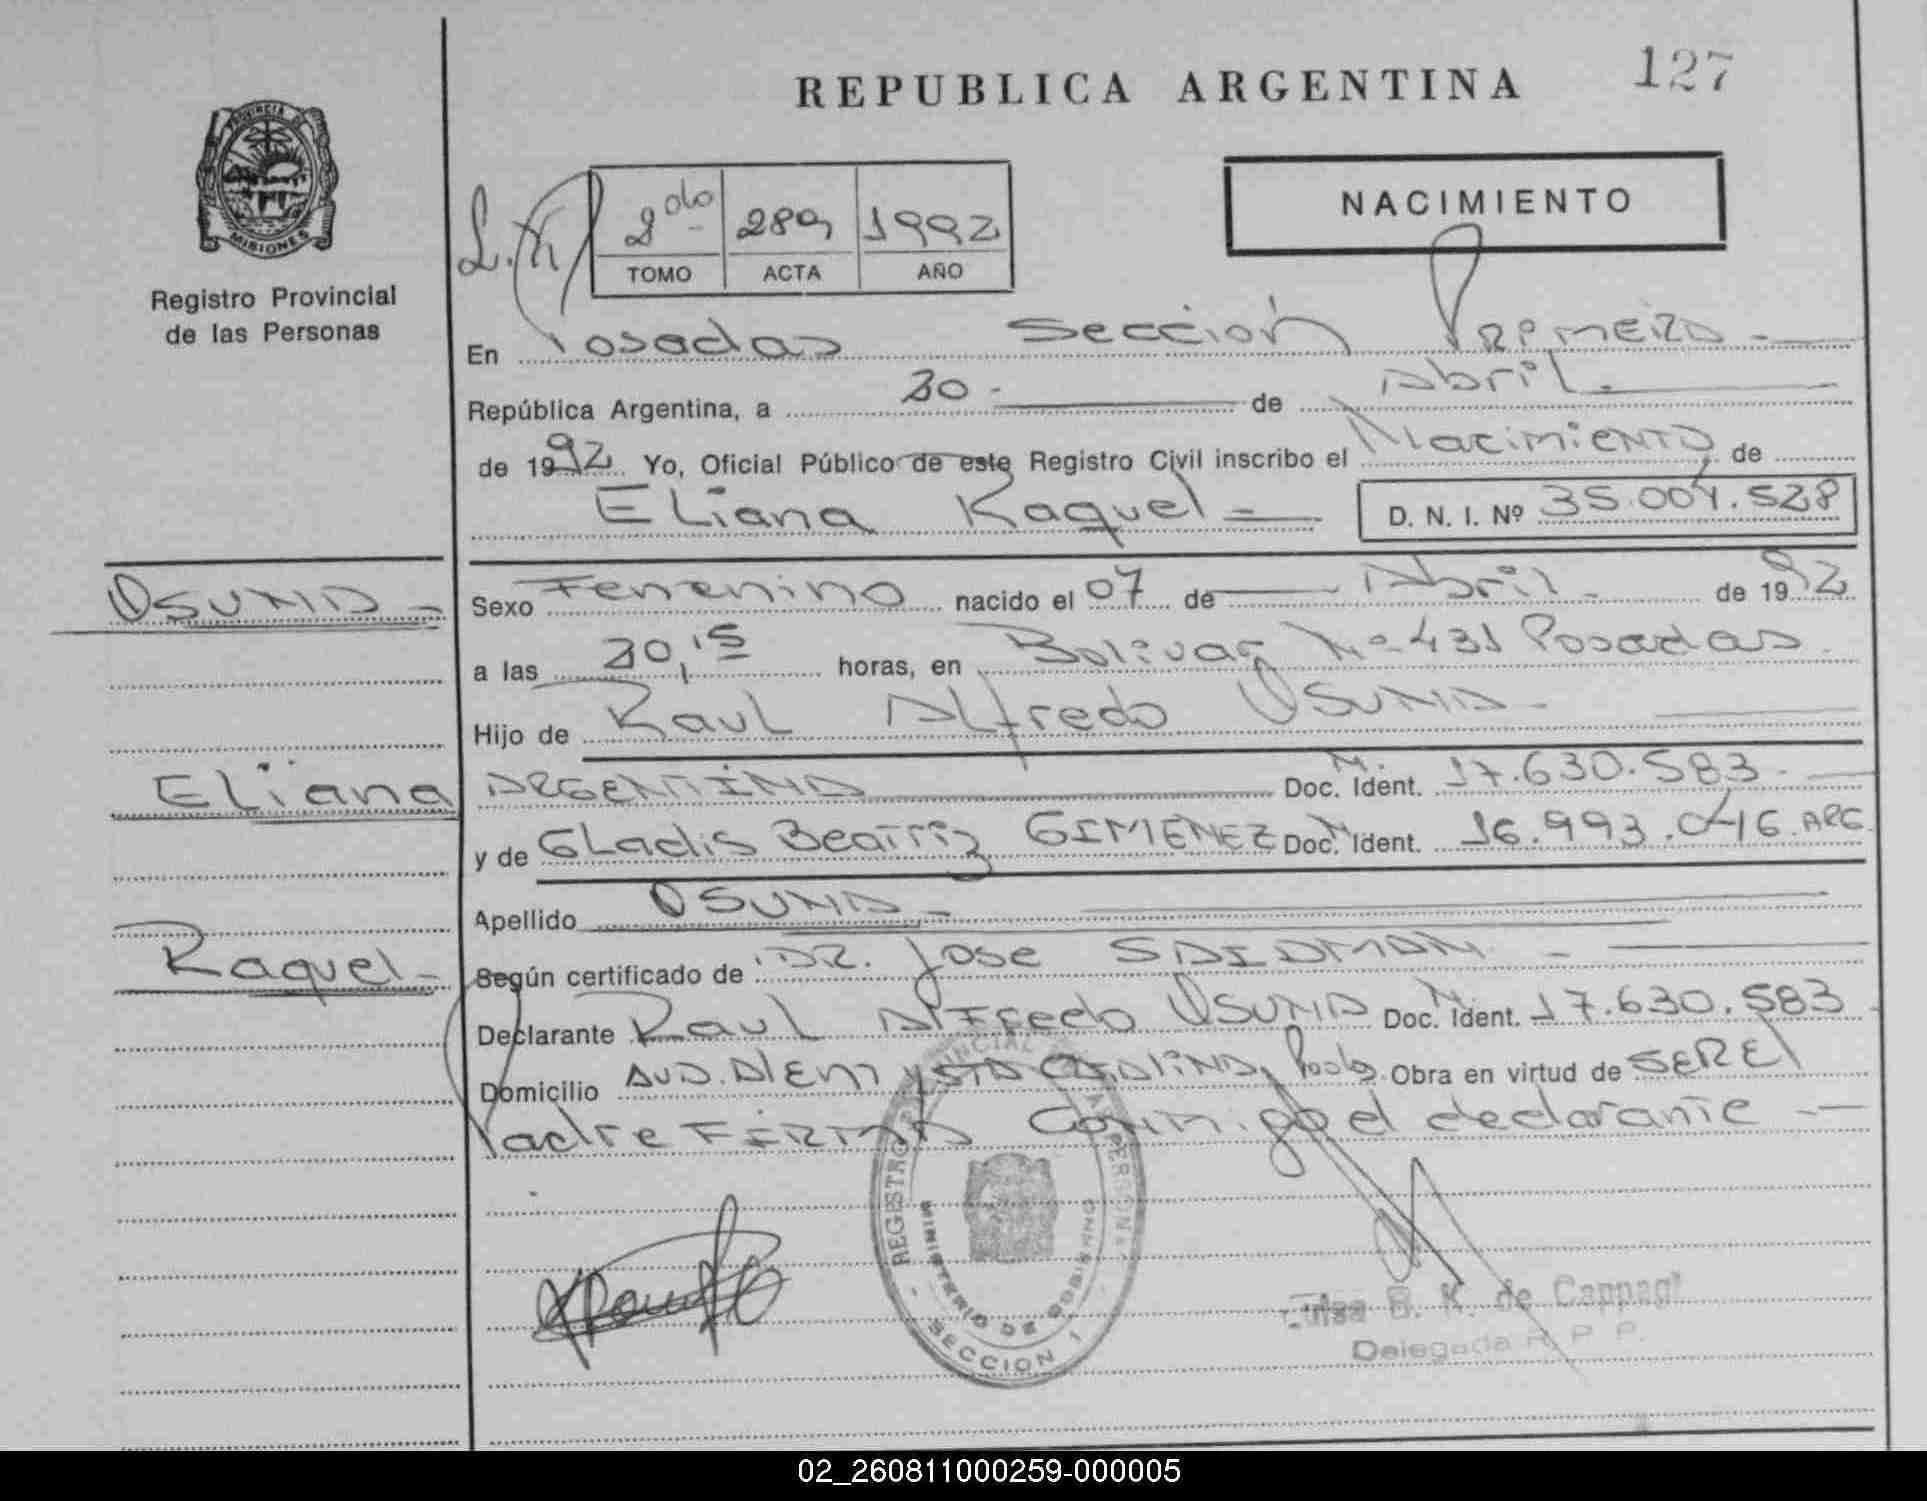 REPUBLICA ARGENTINA
127
PROVINCIA DE
MISIONES
Registro Provincial
de las Personas
2do
289
1992
TOMO
ACTA
AÑO
NACIMIENTO
En Posadas Sección Primera
República Argentina, a 30 de Abril
de 1992 Yo, Oficial Público de este Registro Civil inscribo el Nacimiento de
Eliana Raquel
D. N. I. Nº 35.004.528
OSUNA
Sexo Femenino nacido el 07 de Abril de 1992
a las 20,15 horas, en Bolivar Nº 431 Posadas
Hijo de Raul Alfredo OSUNA
Eliana
ARGENTINA Doc. Ident. 17.630.583
y de Gladis Beatriz GIMENEZ Doc. Ident. 16.993.046 ARG.
Apellido OSUNA
Raquel
Según certificado de DR. Jose SAIDMAN
Declarante Raul Alfredo OSUNA Doc. M. Ident. 17.630.583
Domicilio AVD. Alem y STA CATALINA, Obra en virtud de SER El
Padre FIRMA Conmigo el declarante
REGISTRO PROVINCIAL
MINISTERIO DE GOBIERNO
SECCION 1
B. K. de
Delegada R. P. P.
02_260811000259-000005